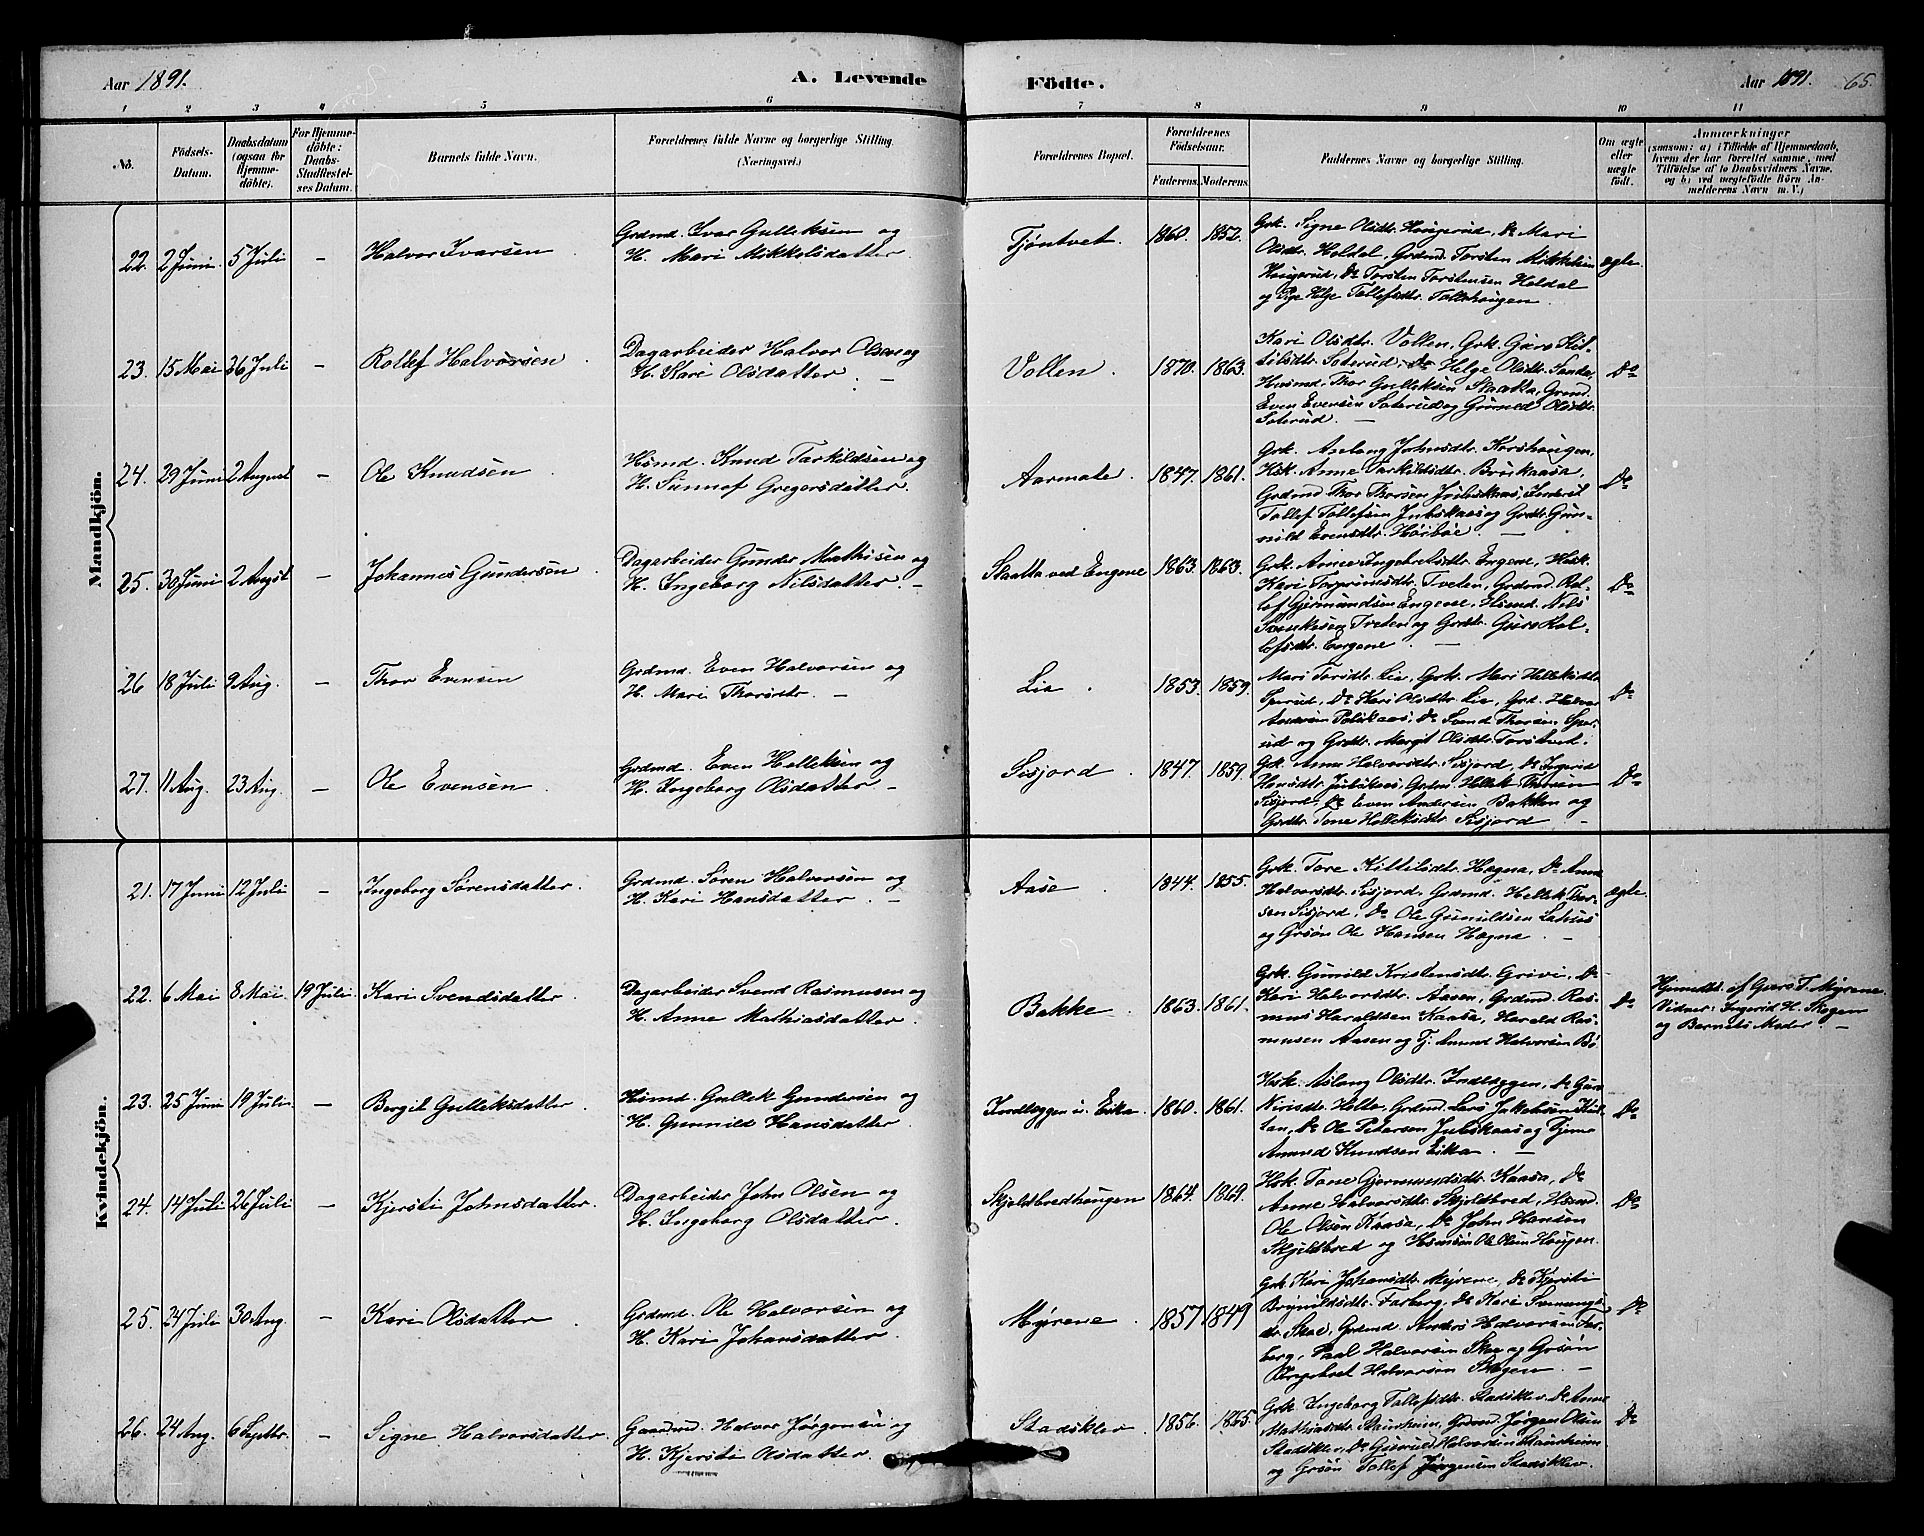 Aar 1891.
A. Levende Födte.
Aar 1891. 65.
1 2 3 4 5 6 7 8 9 10 11
No.
Födsels-Datum.
Daabsdatum (ogsaa for Hjemmedöbte).
For Hjemmedöbte: Daabs-Stadfæstelses Datum.
Barnets fulde Navn.
Forældrenes fulde Navne og borgerlige Stilling. (Næringsvei.)
Forældrenes Bopæl.
Forældrenes Födselsaar.
Faderens. Moderens.
Faddernes Navne og borgerlige Stilling.
Om ægte eller uægte født.
Anmærkninger
(saasom: a) i Tilfælde af Hjemmedaab, hvem der har forrettet samme, med Tilföielse af to Daabsvidners Navne, og b) ved uægtefödte Börn Anmelderens Navn m. V.)
Mandkjön.
22. 2 Juni 5 Juli — Halvor Ivarsen
Grdmd. Ivar Gulleksen og
H. Mari Mikkelsdatter.
Tjöntvet. 1860. 1852.
Grk. Signe Olsdtr. Haugerud, Do Mari
Olsdtr. Holdal, Grdmd Torsten Mikkelsen
Haugerud, Do Torsten Torstensen Holdal
og Pige Helge Tollefsdtr. Tollshaugen.
ægte.
23. 15 Mai 26 Juli — Rollef Halvorsen
Dagarbeider Halvor Olsen og
H. Kari Olsdatter. —
Vollen. 1870. 1863.
Kari Olsdtr. Vollen, Grk. Guro Kit-
tilsdtr. Soterud, Do Helge Olsdtr. Sande,
Husmd. Thor Gulleksen Skaata, Grmd.
Even Evensen Soterud og Gunild Olsdtr.
Soterud. —
Do
24. 29 Juni 2 August — Ole Knudsen
Hsmd. Knud Tarkildsen og
H. Sunnef Gregersdatter.
Aarmote. 1847. 1861.
Grk. Aslaug Johnsdtr. Korshaugen,
Hsk. Anne Tarkildsdtr. Buskaasa,
Grdmd Thor Thorsen Julskaas, Inderst
Tollef Tollefsen Julskaas og Grdtr. Gun-
nild Evensdtr. Höibøe. —
Do
25. 30 Juni 2 Augst — Johannes Gundersen
Dagarbeider Gunder Mathisen og
H. Ingeborg Nilsdatter. —
Skaatta ved Engene 1863. 1863.
Grk. Anne Ingebretsdtr. Engene, Hsk.
Kari Torgrimsdtr. Tveten, Grdmd. Rol-
lef Gjermundsen Engene, Hsmd. Nels
Svenksen Tveten og Grdtr. Guro Rol-
lefsdtr. Engene. —
Do
26 18 Juli 9 Aug. — Thor Evensen
Grdmd. Even Halvorsen og
H. Mari Thorsdtr. —
Lia. 1853. 1859.
Mari Torsdtr. Lie, Grk. Mari Helleksdtr.
Sperud, Do Kari Olsdtr. Lie, Grd. Halvor
Andersen Polskaas, Do Svend Thorsen Spe-
rud og Grdtr. Margit Olsdtr. Torstvet.
Do
27. 11 Aug. 23 Aug. — Ole Evensen
Grdmd. Even Helleksen og
H. Ingeborg Olsdatter —
Sisjord. 1847. 1859.
Grk. Anne Halvorsdtr. Sisjord, Do Ingerid
Hansdtr. Julskaas, Grdm. Hellek Thorsen
Sisjord, Do Even Andersen Bakken og
Grdtr. Tone Helleksdtr. Sisjord —
Do
Kvindekjön.
21. 17 Juni 12 Juli — Ingeborg Sørensdatter.
Grdmd. Søren Halvorsen og
H. Kari Hansdatter. —
Aase. 1844. 1855.
Grk. Tore Kittilsdtr. Hagna, Do Anne
Halvorsdtr. Sisjord, Grdmd. Hellek Tor-
sen Sisjord, Do Ole Gunuldsen Lahus
og Grsøn Ole Hansen Hagna. —
ægte.
22. 6 Mai 8 Mai. 19 Juli Kari Svendsdatter.
Dagarbeider Svend Rasmusen og
H. Anne Mathiasdatter.
Bakke. 1863. 1861.
Grk. Gunild Kristensdtr. Grivi, Do
Kari Halvorsdtr. Aasen, Grdmd. Ras-
mus Haraldsen Kaasa, Harald Ras-
musen Aasen og Tj. Amund Halvorsen Bö
Do
Hjemdbt. af Guro T. Myrene.
Vidner: Ingerid H. Skogen
og Barnets Moder. —
23. 25 Juni 19 Juli — Bergit Gulleksdatter.
Hsmd. Gullek Gundersen og
H. Gunnild Hansdatter.
Indlæggen u. Eika. 1860. 1861.
Hsk. Aslaug Olsdtr. Indlæggen, Do Gun
Nirisdtr. Helte, Grdmd. Lars Jakobsen
Do Ole Petersen Julskaas og Tjener
Amund Knudsen Eika. —
Do
24. 14 Juli 26 Juli — Kjersti Johnsdatter.
Dagarbeider John Olsen og
H. Ingeborg Olsdatter.
Skjeldbredhaugen 1864. 1869.
Hsk. Tone Gjermundsdtr. Kaasa, Do
Anne Halvorsdtr. Skjeldbred, Hsmd.
Ole Olsen Kaasa, Do John Hansen
Skjeldbred og Hsmsøn Ole Olsen Haugen.
Do
25. 24 Juli 30 Aug. — Kari Olsdatter
Grdmd. Ole Halvorsen og
H. Kari Johansdatter.
Myrene. 1857 1849
Grk. Kari Johansdtr. Myrene, Do Kjersti
Brynildsdtr. Farberg, Do Kari Svenungs-
dtr. Skoe, Grdmd. Anders Halvorsen Far-
berg, Paal Halvorsen Skoe og Grsøn
Ingebret Halvorsen Skogen. —
Do
26. 24 Aug. 6 Septbr. — Signe Halvorsdatter.
Gaardmd. Halvor Jørgensen og
H. Kjersti Olsdatter.
Stadskler. 1856. 1865.
Grk. Ingeborg Tollefsdtr. Stadskler Do Anne
Mathiasdtr. Stensheim, Grdmd. Jørgen Olsen
Stadskler, Do Gisruld Halvorsen Stensheim
og Grsøn Tollef Jørgensen Stadskler.
Do